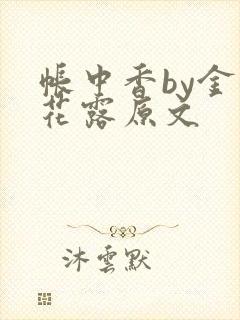 帳中香by金
花露原文
沐雲默